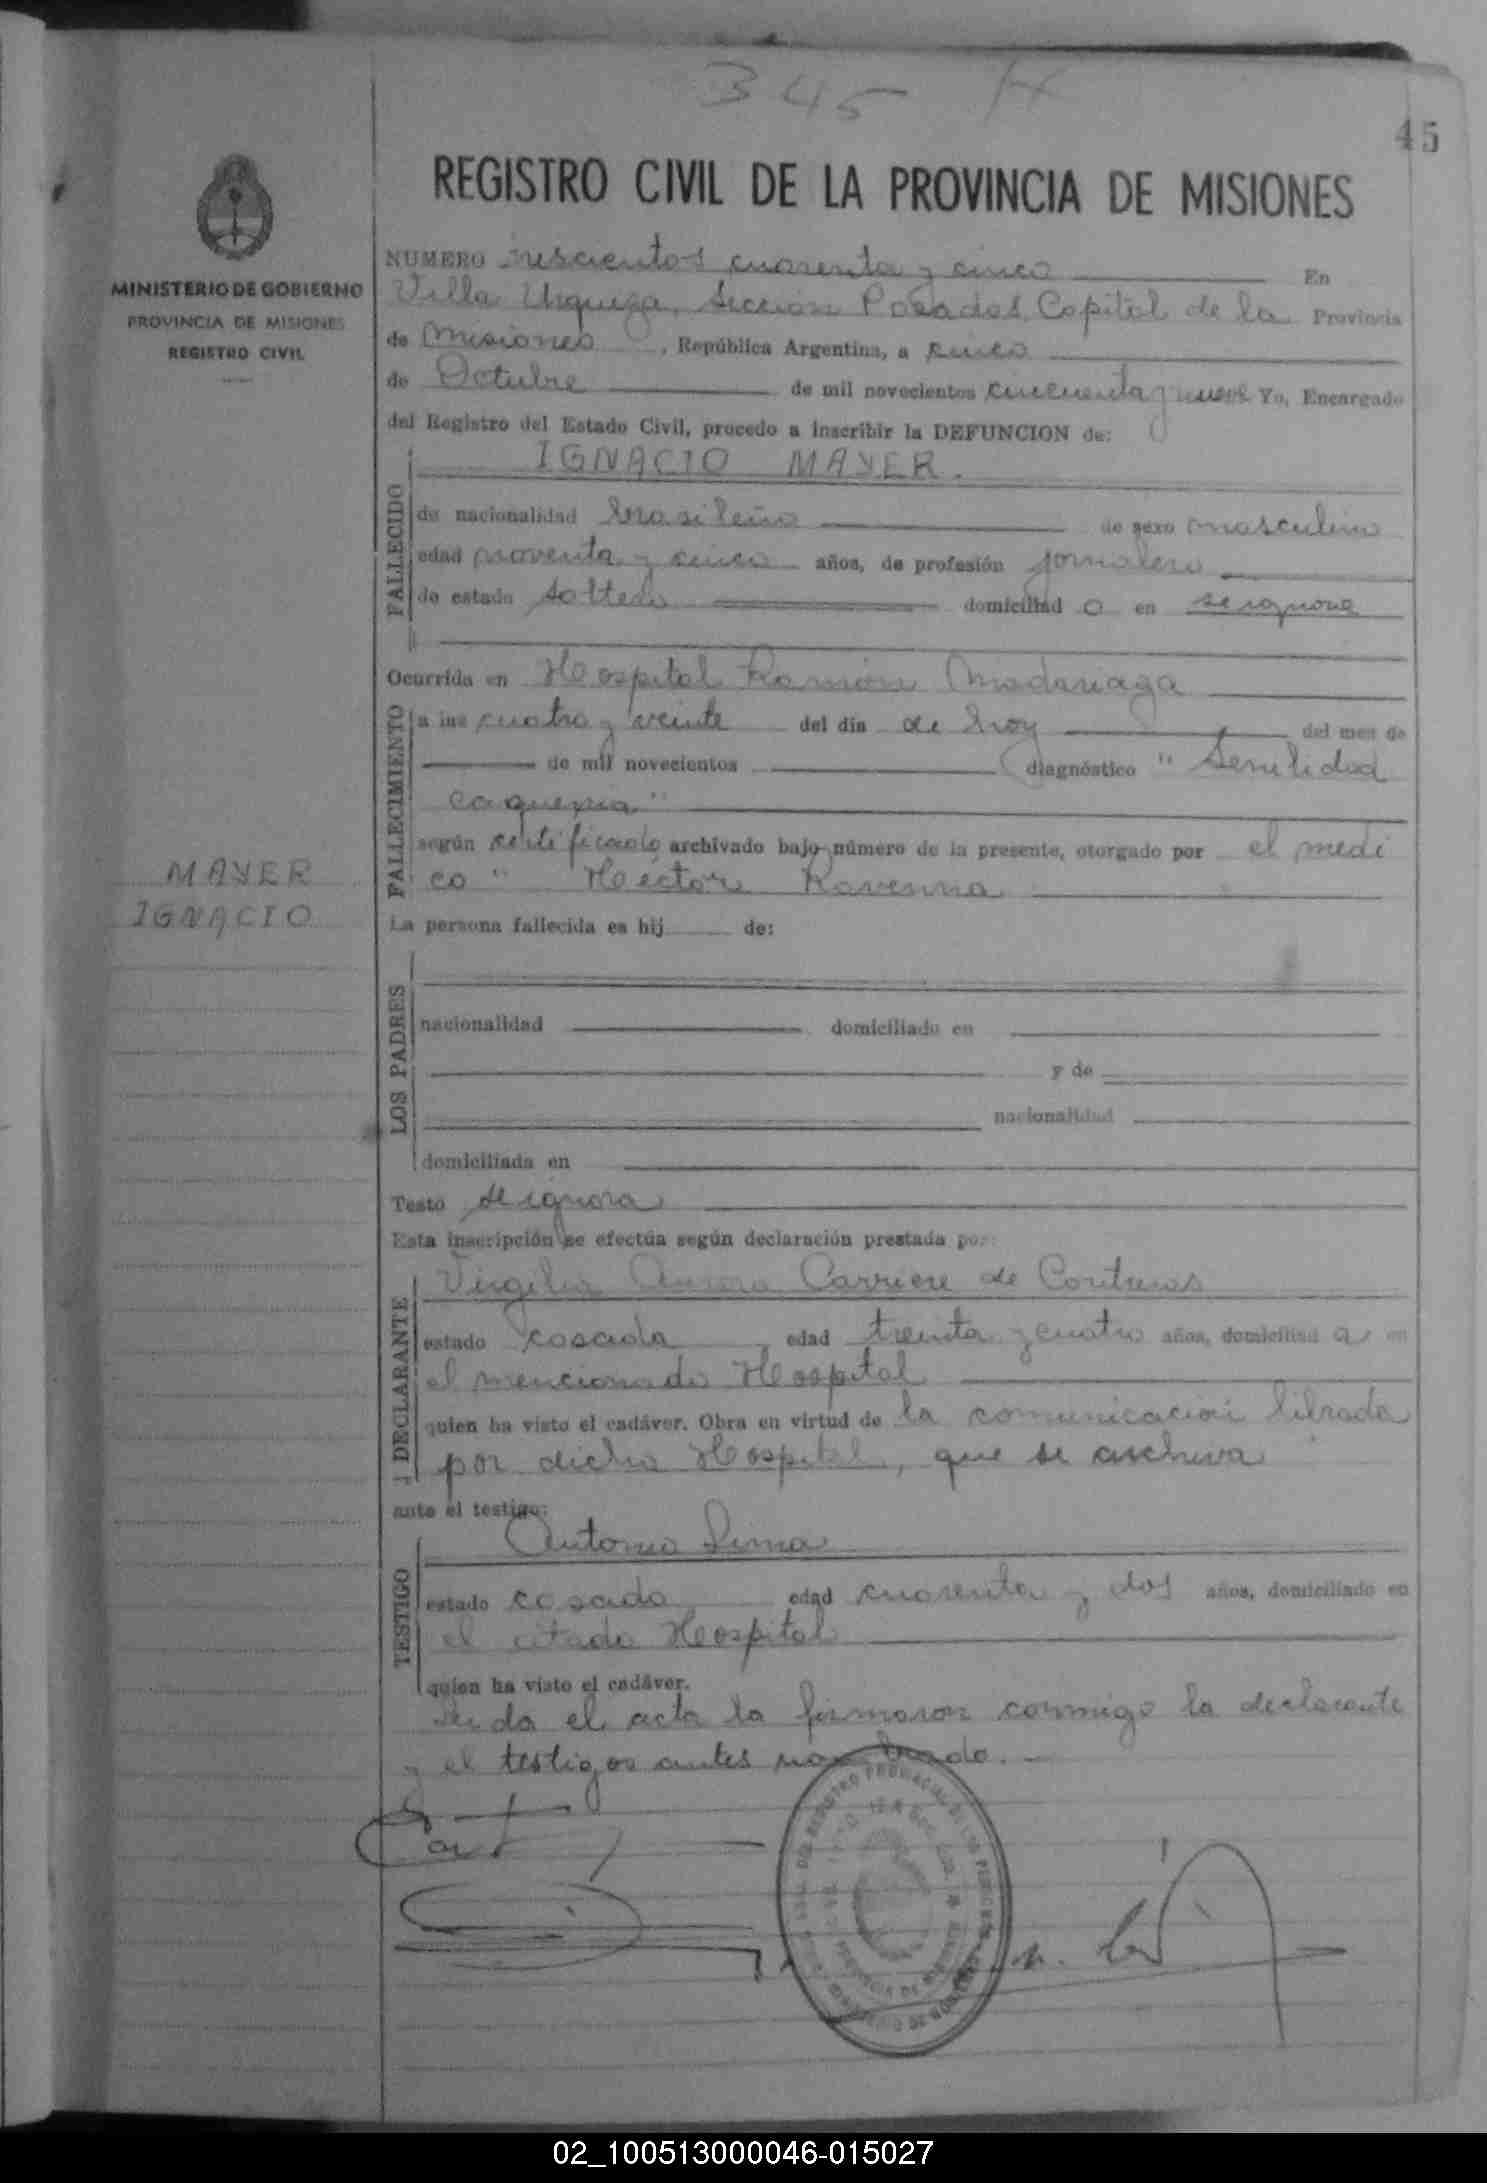 345
45
REGISTRO CIVIL DE LA PROVINCIA DE MISIONES
MINISTERIO DE GOBIERNO
PROVINCIA DE MISIONES
REGISTRO CIVIL
NUMERO trescientos cuarenta y cinco En
Villa Urquiza, Sección Posadas Capital de la Provincia
de Misiones, República Argentina, a cinco
de Octubre de mil novecientos cincuenta y nueve Yo, Encargado
del Registro del Estado Civil, procedo a inscribir la DEFUNCION de:
IGNACIO MAYER.
FALLECIDO
de nacionalidad brasileño de sexo masculino
edad noventa y cinco años, de profesión jornalero
de estado soltero domiciliad o en se ignora
Ocurrida en Hospital Ramón Madariaga
FALLECIMIENTO
a las cuatro y veinte del día de hoy del mes de
de mil novecientos diagnóstico "Senilidad
caquexia"
según certificado archivado bajo número de la presente, otorgado por el medi
co" Héctor Ravenna
MAYER
IGNACIO
La persona fallecida es hij de:
LOS PADRES
nacionalidad domiciliado en
y de
nacionalidad
domiciliada en
Testó se ignora
Esta inscripción se efectúa según declaración prestada por:
DECLARANTE
Virgilia Aurora Carriere de Contreras
estado casada, edad treinta y cuatro años, domiciliad a en
el mencionado Hospital
quien ha visto el cadáver. Obra en virtud de la comunicación librada
por dicho Hospital, que se archiva
ante el testigo:
TESTIGO
Antonio Lima
estado casado edad cuarenta y dos años, domiciliado en
el citado Hospital
quien ha visto el cadáver.
Leida el acta la firmaron conmigo la declarante
y el testigos antes nombrado.
02_100513000046-015027